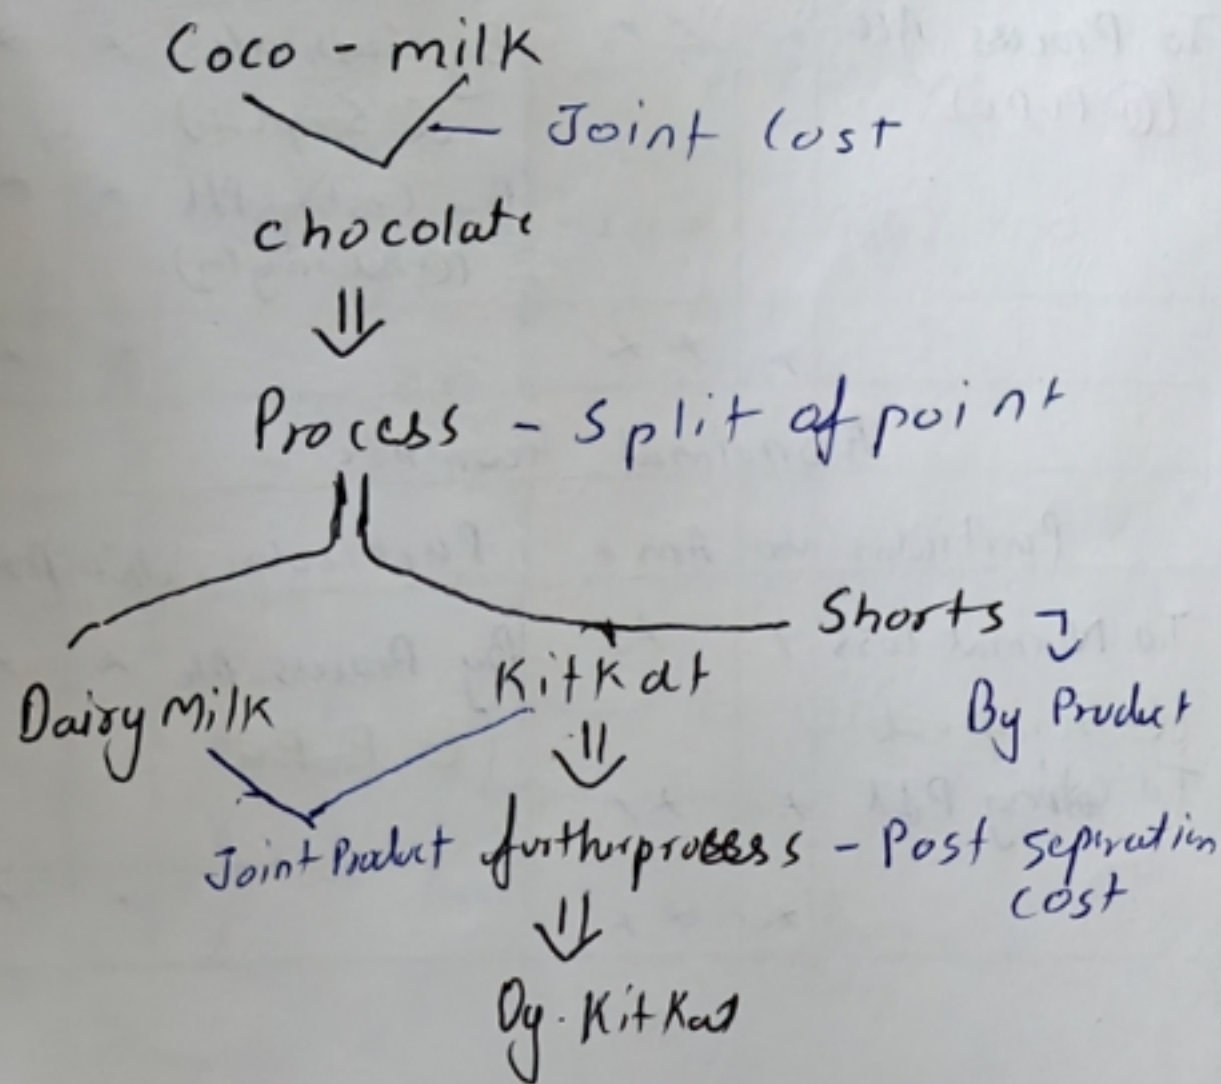 Coco - milk
Joint Cost
chocolate
Process - Split of point
Shorts
Dairy Milk
KitKat
By Product
Joint Product
furthurprocess - Post sepiration
cost
Og. KitKat